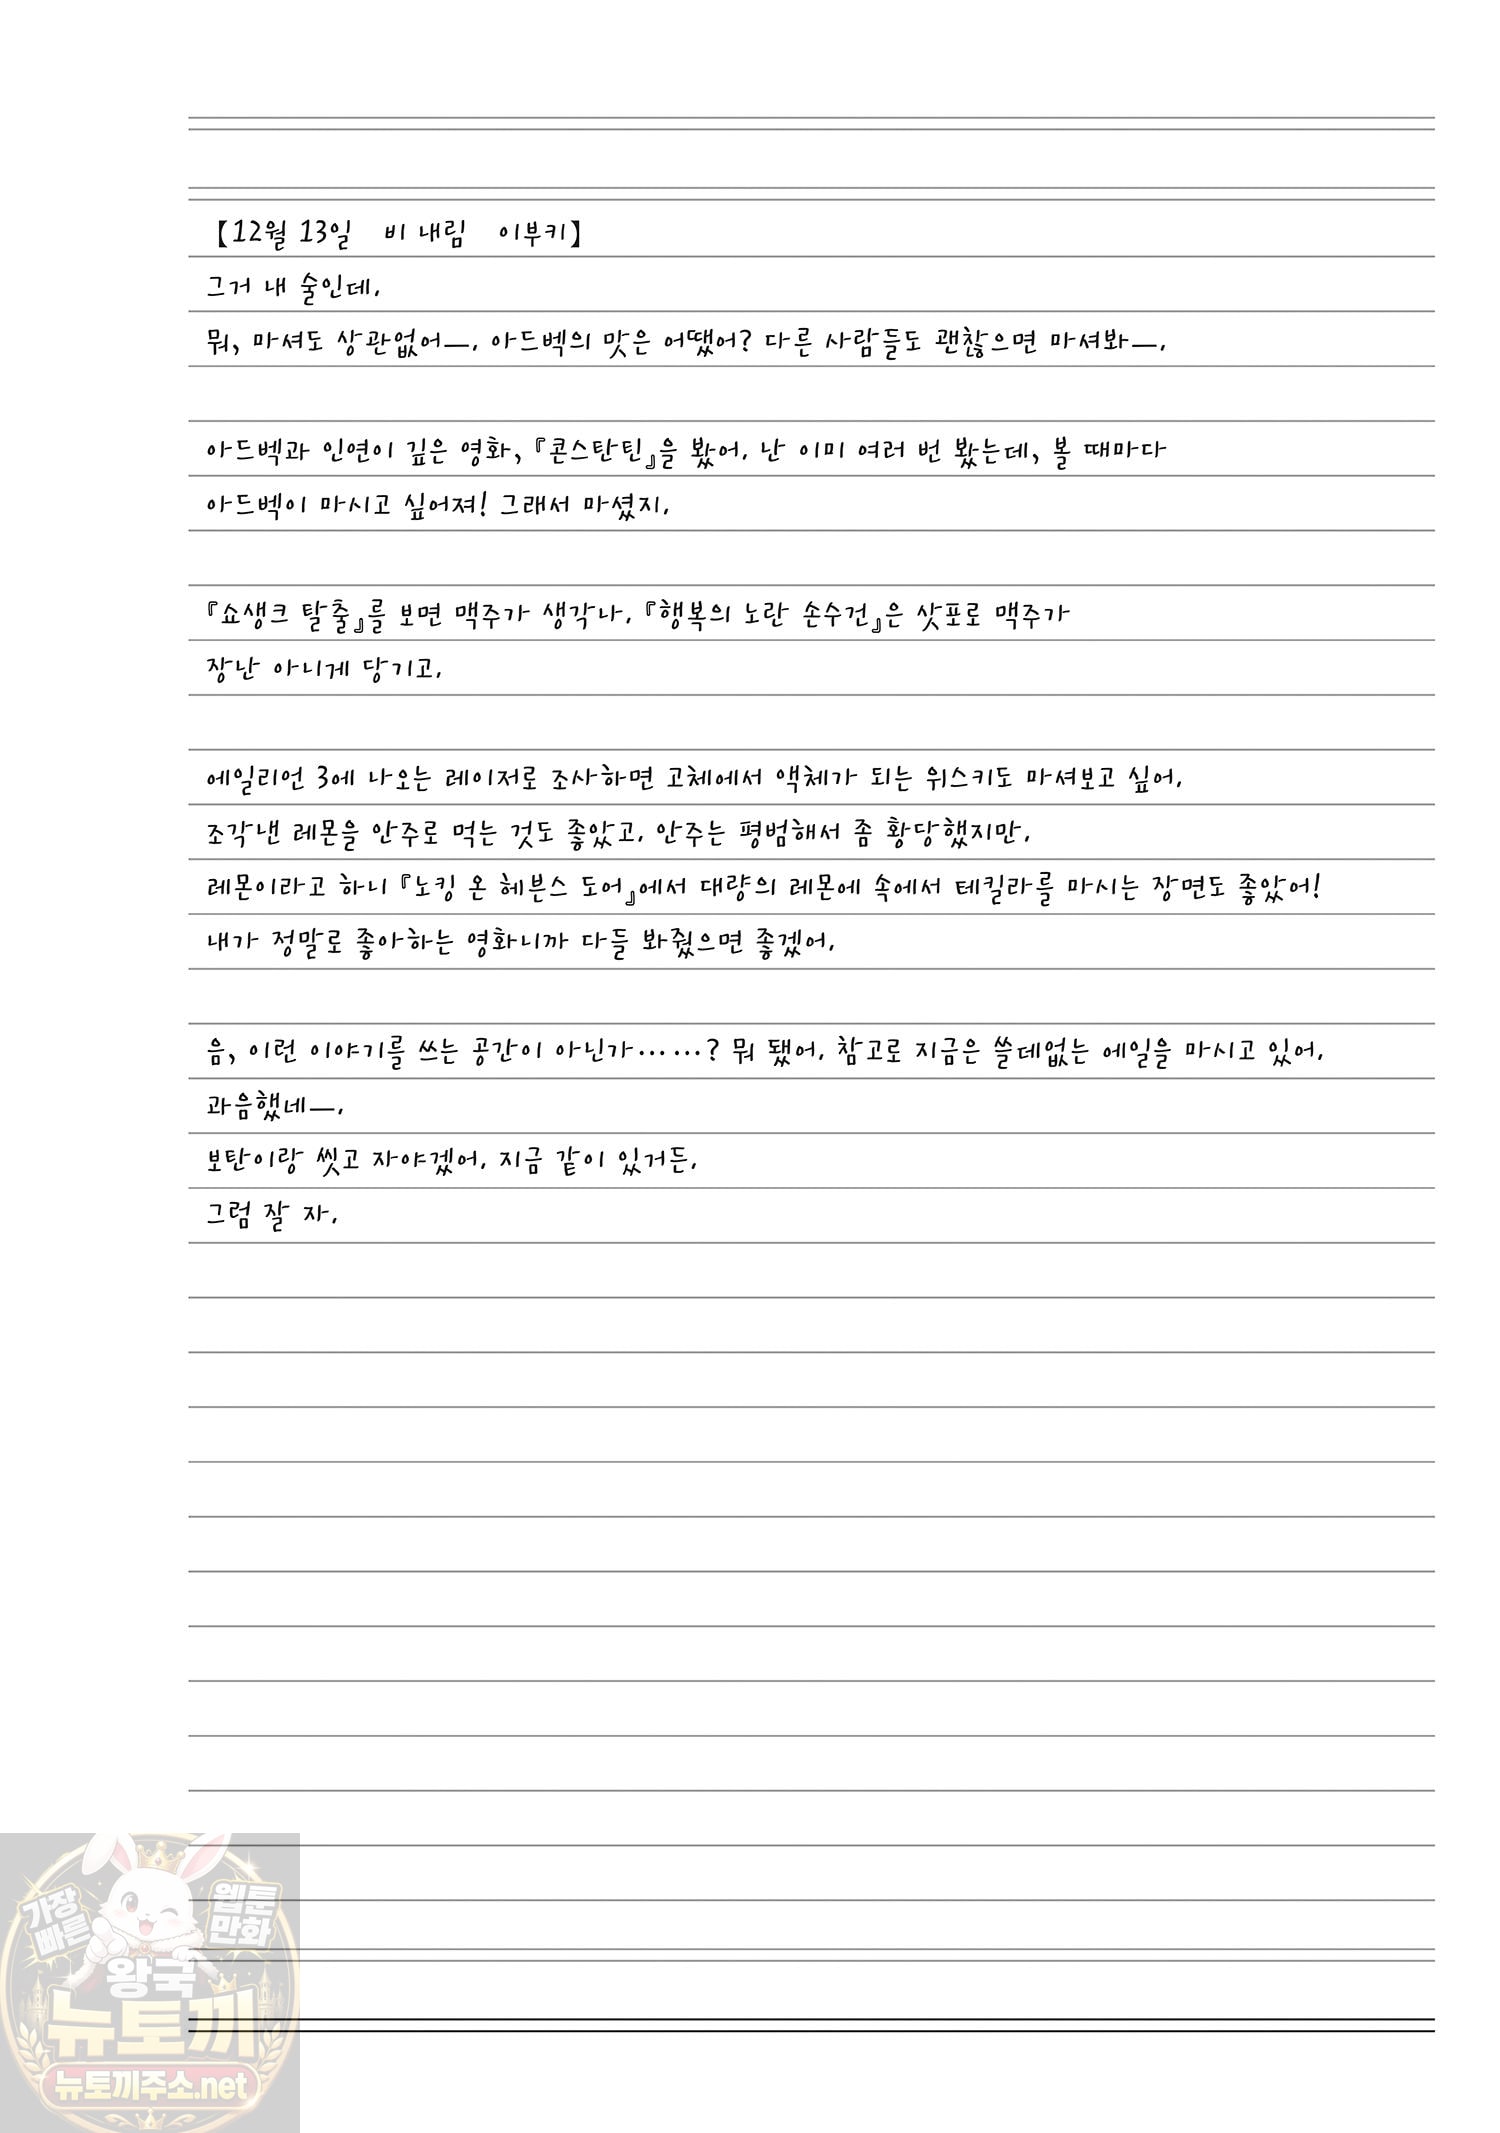 【12월 13일 비 내림 이부키】
그거 내 술인데.
뭐, 마셔도 상관없어—. 아드벡의 맛은 어땠어? 다른 사람들도 괜찮으면 마셔봐—.
아드벡과 인연이 깊은 영화, 『콘스탄틴』을 봤어. 난 이미 여러 번 봤는데, 볼 때마다
아드벡이 마시고 싶어져! 그래서 마셨지.
『쇼생크 탈출』를 보면 맥주가 생각나. 『행복의 노란 손수건』은 삿포로 맥주가
장난 아니게 당기고.
에일리언 3에 나오는 레이저로 조사하면 고체에서 액체가 되는 위스키도 마셔보고 싶어.
조각낸 레몬을 안주로 먹는 것도 좋았고. 안주는 평범해서 좀 황당했지만.
레몬이라고 하니 『노킹 온 헤븐스 도어』에서 대량의 레몬에 속에서 테킬라를 마시는 장면도 좋았어!
내가 정말로 좋아하는 영화니까 다들 봐줬으면 좋겠어.
음, 이런 이야기를 쓰는 공간이 아닌가……? 뭐 됐어. 참고로 지금은 쓸데없는 에일을 마시고 있어.
과음했네—.
보탄이랑 씻고 자야겠어. 지금 같이 있거든.
그럼 잘 자.
가장 빠른
웹툰 만화
왕국
뉴토끼
뉴토끼주소.net